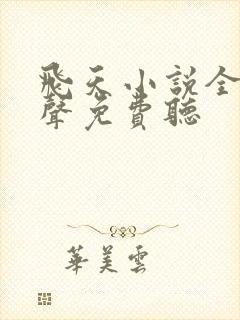 飛天小說全
聲免費聽
華美雲